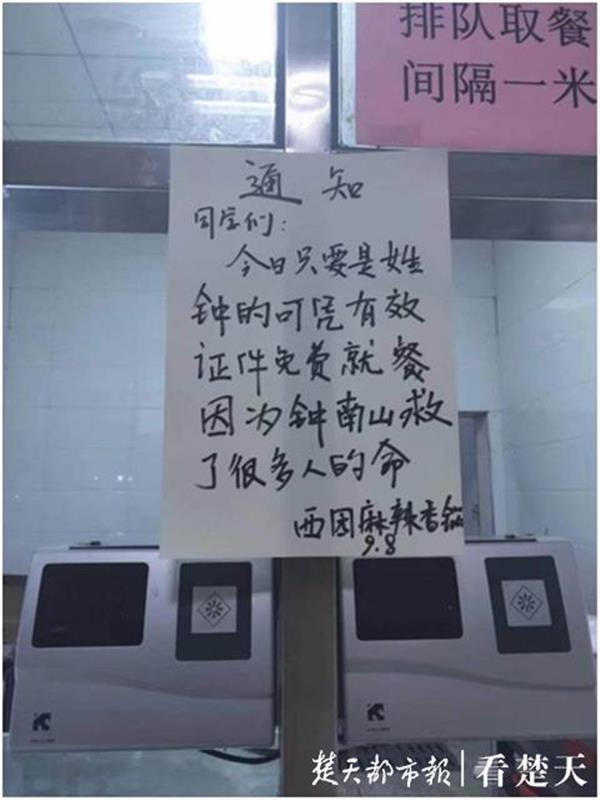 排队取餐
间隔一米
通知
同学们：
今日只要是姓
钟的可凭有效
证件免费就餐
因为钟南山救
了很多人的命
西园麻辣香锅
9.8
楚天都市报|看楚天